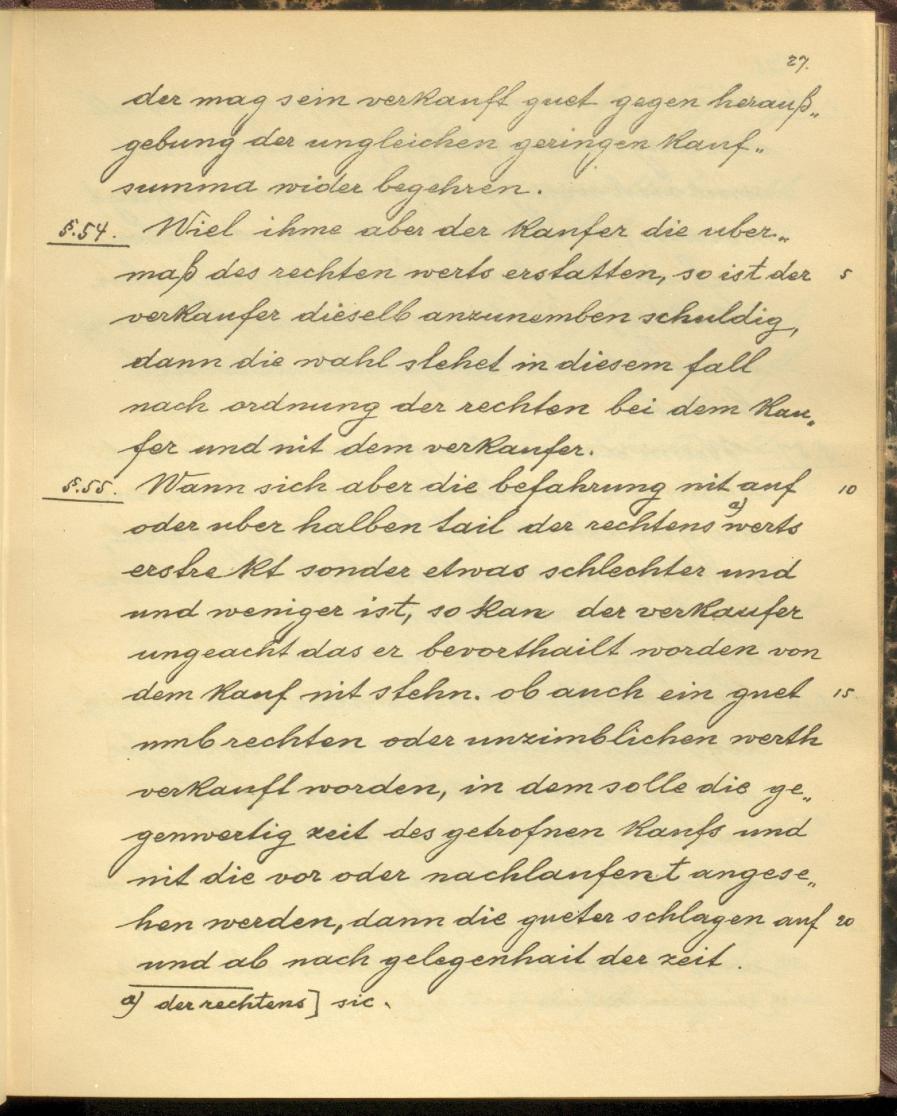 27.
der mag sein verkauft guet gegen herauß„
gebung der ungleichen geringen Kauf„
summa wider begehren.
§.54. Wiel ihme aber der Kaufer die uber„
maß des rechten werts erstatten, so ist der 5
verkaufer dieselb anzunemben schuldig,
dann die wahl stehet in diesem fall
nach ordnung der rechten bei dem Kau„
fer und nit dem verkaufer.
§.55. Wann sich aber die befahrung nit auf 10
oder uber halben tail der rechtens a) werts
erstrekt sonder etwas schlechter und
und weniger ist, so kan der verkaufer
ungeacht das er bevorthailt worden von
dem Kauf nit stehn. ob auch ein guet 15
umb rechten oder unzimblichen werth
verkauft worden, in dem solle die ge„
genwertig zeit des getrofnen Kaufs und
nit die vor oder nachlaufent angese„
hen werden, dann die gueter schlagen auf 20
und ab nach gelegenhait der zeit.
a) der rechtens] sic.